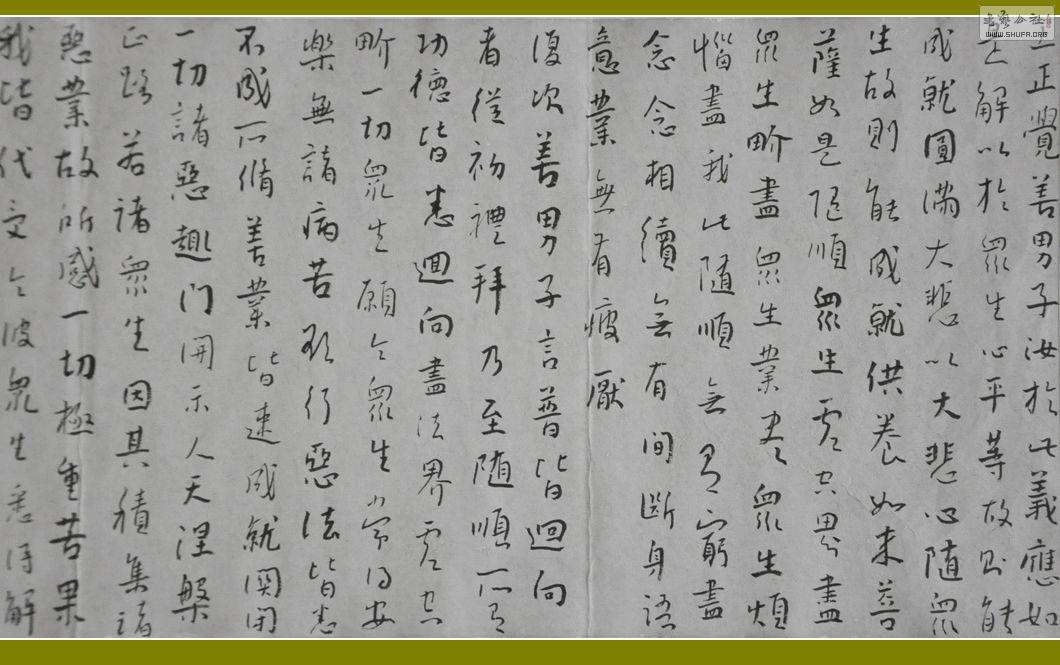 上正覺善男子汝於此義應如
是解以於眾生心平等故則能
成就圓滿大悲以大悲心隨眾
生故則能成就供養如來菩
薩如是隨順眾生虛空界盡
眾生界盡眾生業盡眾生煩
惱盡我此隨順無有窮盡
念念相續無有間斷身語
意業無有疲厭
復次善男子言普皆迴向
者從初禮拜乃至隨順所有
功德皆悉迴向盡法界虛空
界一切眾生願令眾生常得安
樂無諸病苦欲行惡法皆悉
不成所脩善業皆速成就關閉
一切諸惡趣門開示人天涅槃
正路若諸眾生因其積集諸
惡業故所感一切極重苦果
我皆代受令彼眾生悉得解
www.SHUFA.ORG